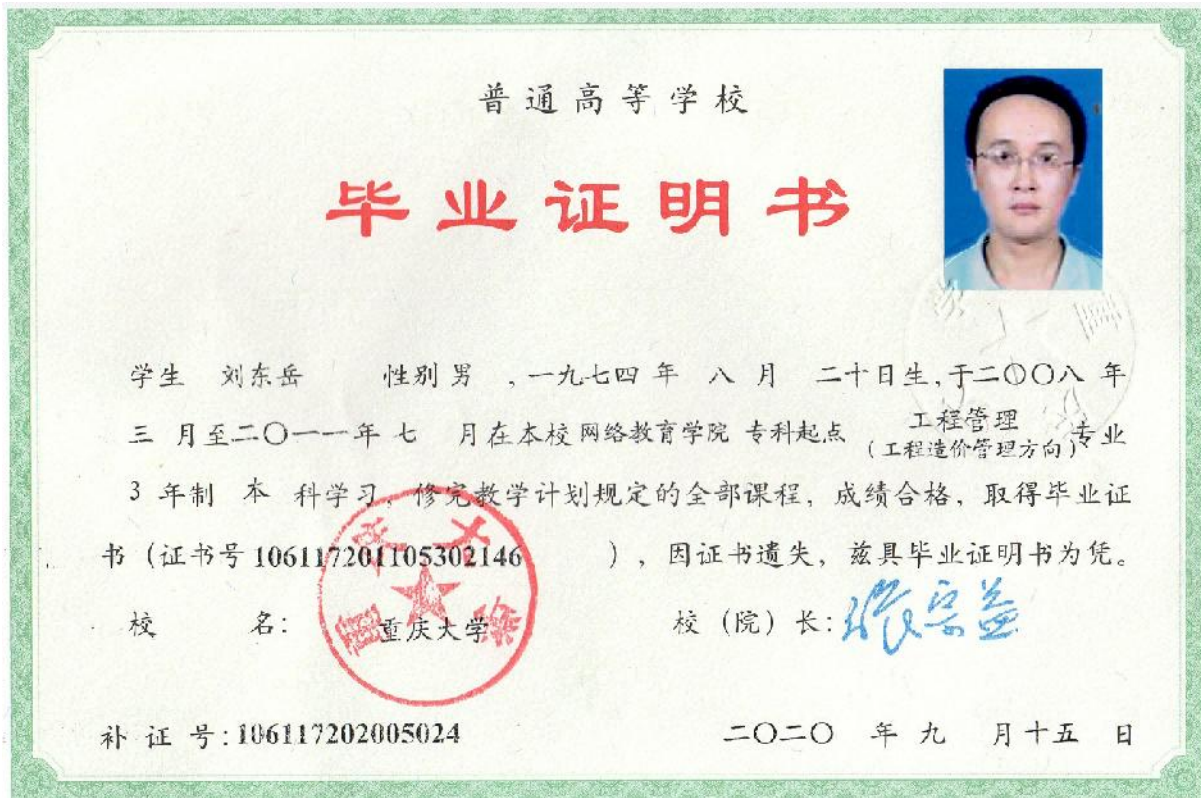 普通高等学校
毕业证明书
学生 刘东岳 性别 男 ,一九七四 年 八 月 二十日生,于二〇〇八 年
三 月至二〇一一年 七 月在本校 网络教育学院 专科起点 工程管理(工程造价管理方向)专业
3 年制 本 科学习,修完教学计划规定的全部课程,成绩合格,取得毕业证
书(证书号 106117201105302146 ),因证书遗失,兹具毕业证明书为凭。
校 名: 重庆大学 校(院)长: 张宗益
重庆大学
补 证 号: 106117202005024 二〇二〇 年 九 月十五 日